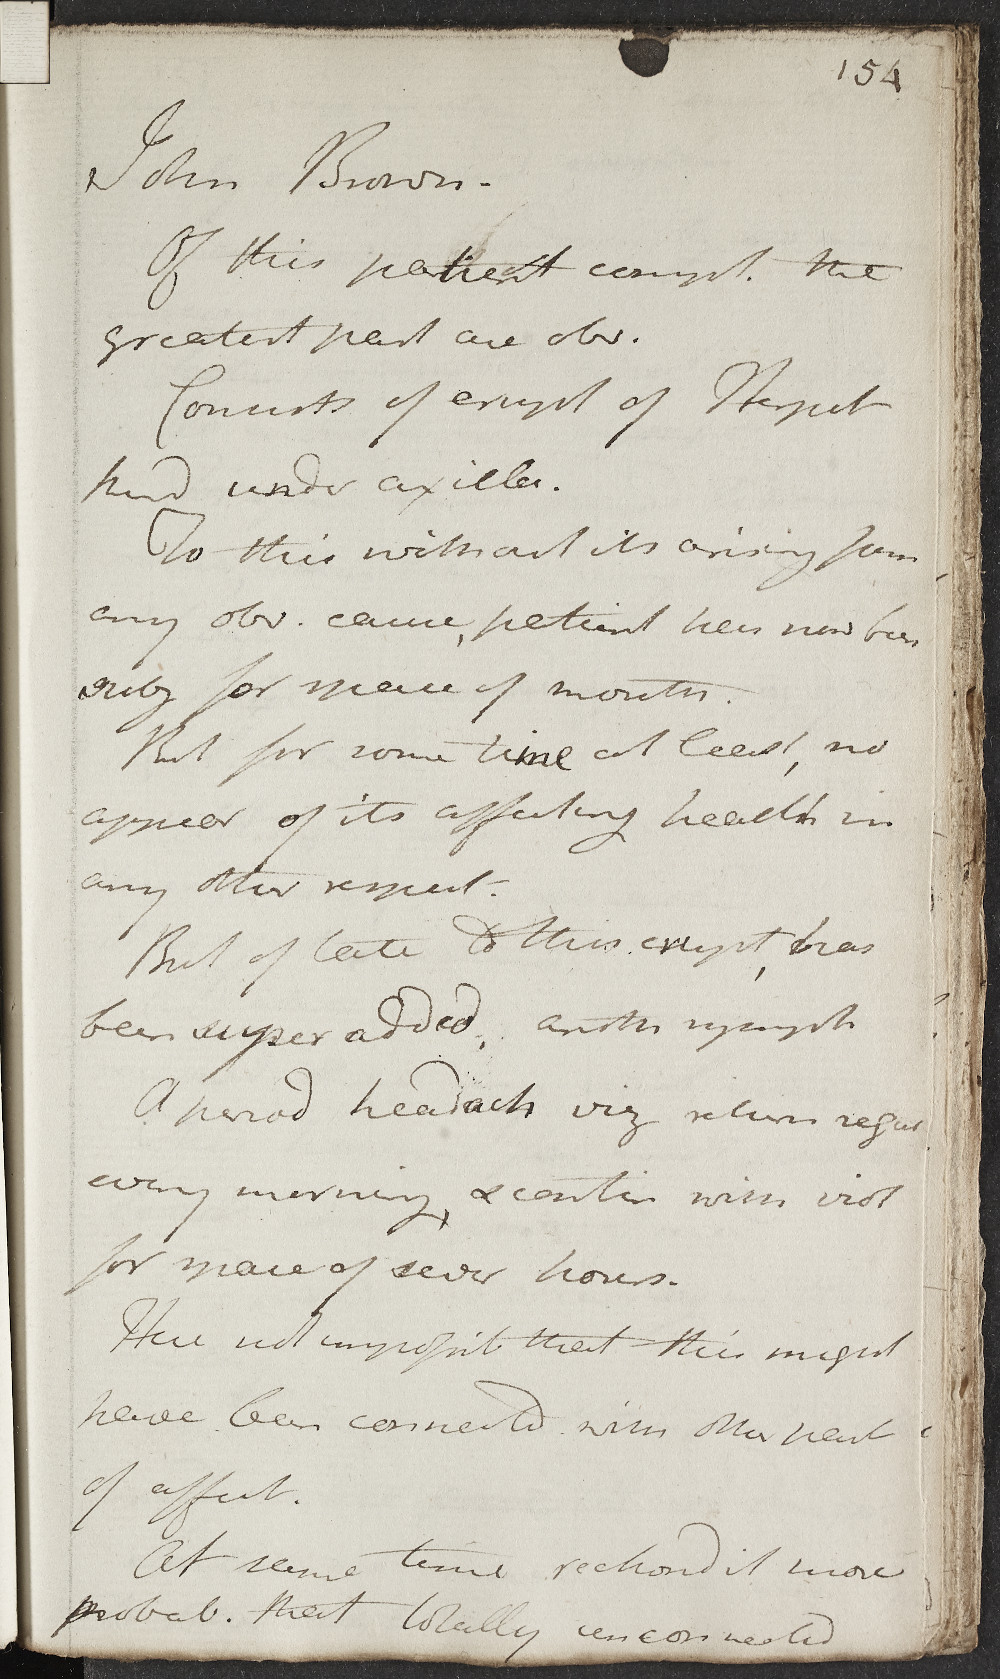 154
John Brown.
Of this patient compl. the
greatest part are obv.
Consists of erupt of Herpet
kind under axilla.
To this without its arising from
any obv. cause, patient has now been
subj for space of month.
But for some time at least, no
appear of its affecting health in
any other respect.
But of late to this erupt, has
been super added, anoth symptt
A period headach viz return regul
every morning, & contin with viol
for space of sever hours.
Here not impossib that this might
have been connected with other part
of affect.
At same time reckond it more
probab. that totally unconnected